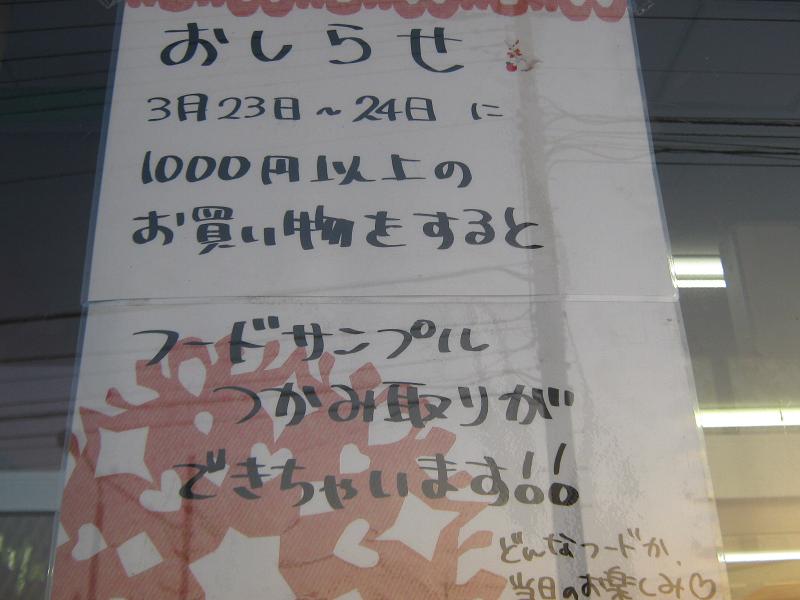 おしらせ
3月23日～24日に
1000円以上の
お買い物をすると
フードサンプル
つかみ取りが
できちゃいます!!
どんなフードか、
当日のお楽しみ♡